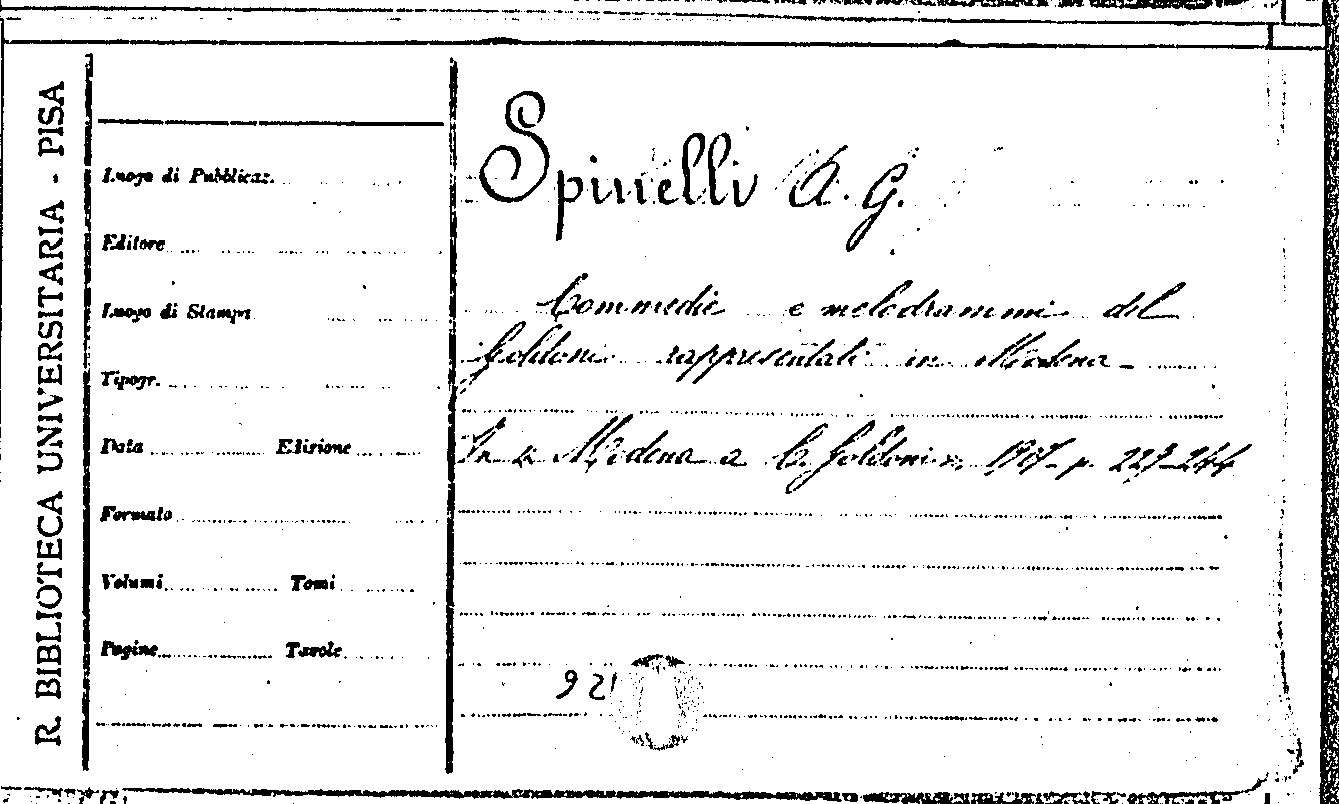 R. BIBLIOTECA UNIVERSITARIA - PISA
Luogo di Pubblicaz.
Editore
Luogo di Stampa
Tipogr.
Data Edizione
Formato
Volumi Tomi
Pagine Tavole
Spinelli A. G.
Commedie e melodrammi del
Goldoni rappresentati in Modena -
In « Modena a C. Goldoni », 1907 - p. 229-244
92